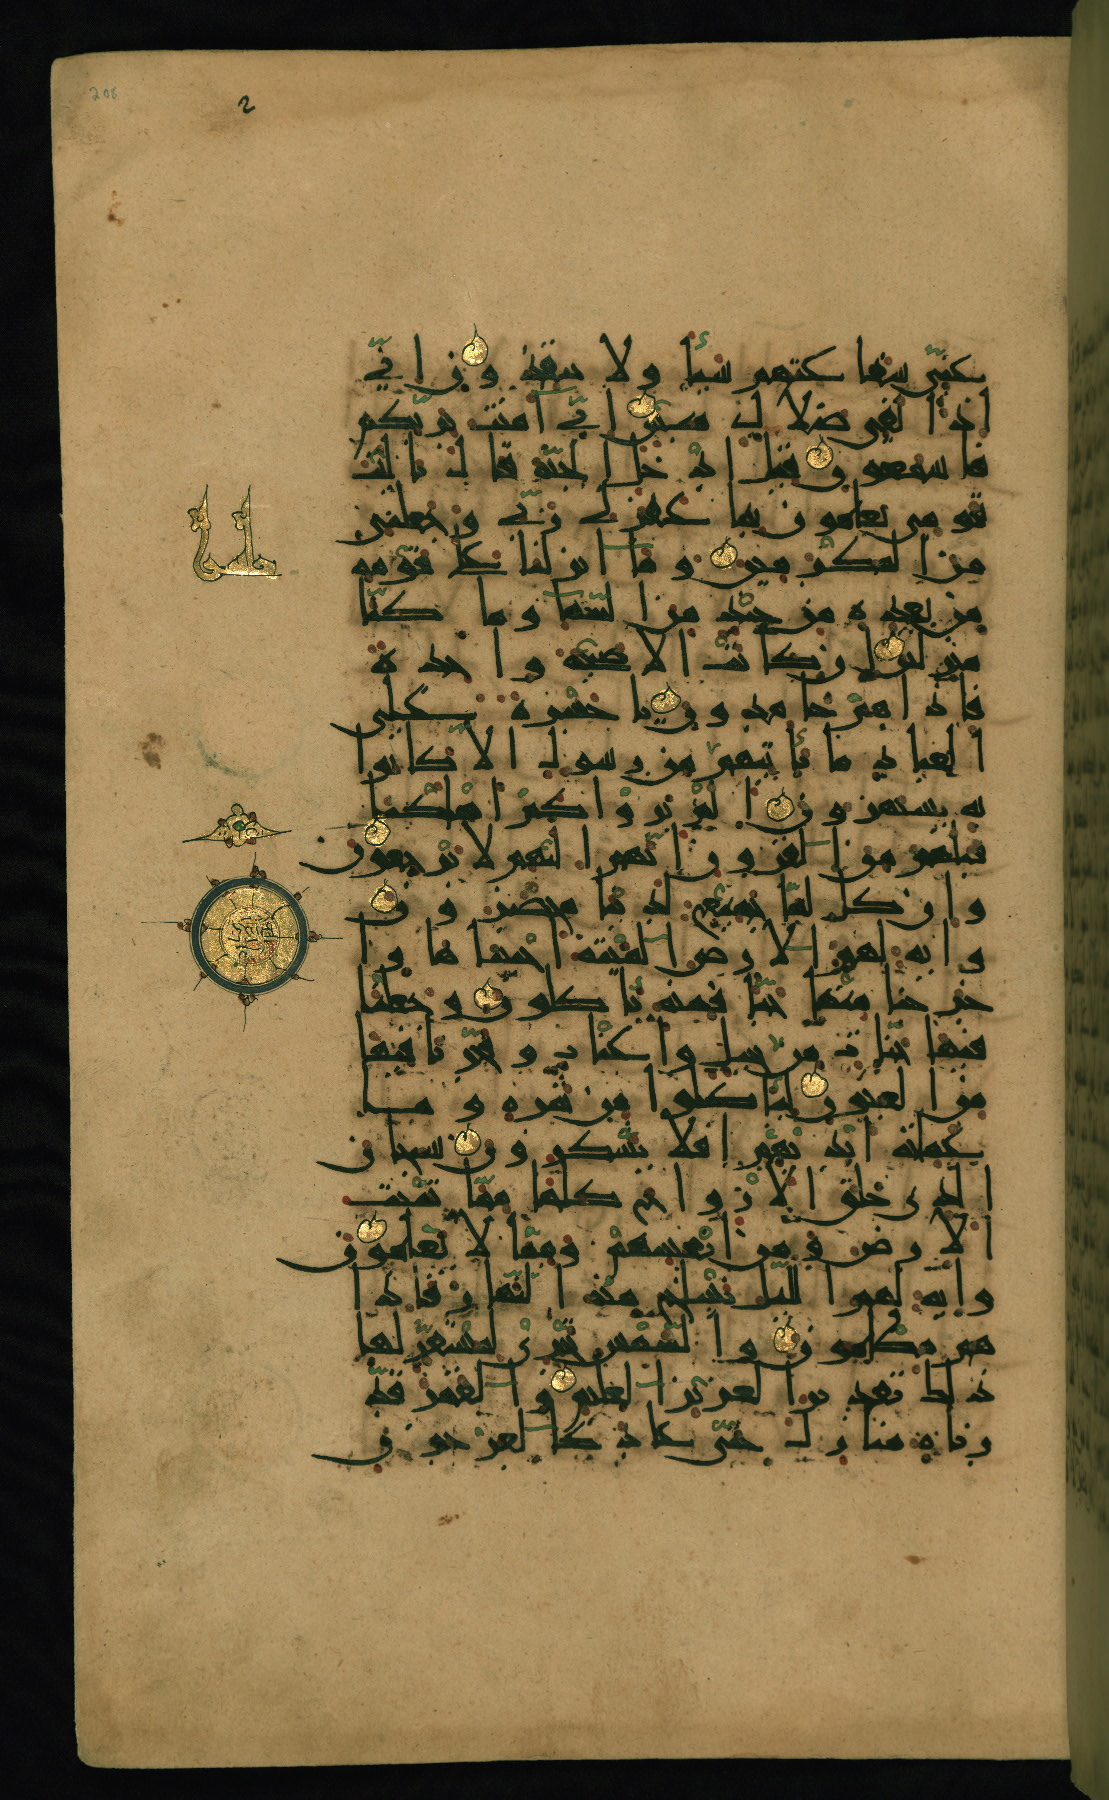 208
2
عنّي شفاعتهم شيئا ولا ينقذون انّي
اذا لفي ضلال مبين انّي آمنت بربّكم
فاسمعون قيل ادخل الجنّة قال ياليت
قومي يعلمون بما غفر لي ربّي وجعلني
من المكرمين وما انزلنا على قومه
من بعده من جند من السّما وما كنّا
منزلين ان كانت الّا صيحة واحدة
فاذا هم خامدون يا حسرة على
العباد ما يأتيهم من رسول الّا كانوا
به يستهزون الم يروا كم اهلكنا
قبلهم من القرون انّهم اليهم لا يرجعون
وان كلّ لمّا جميع لدينا محضرون
واية لهم الارض الميتة احييناها وا
خرجنا منها حبّا فمنه يأكلون وجعلنا
فيها جنّات من نخيل واعناب وفجّرنا فيها
من العيون ليأكلوا من ثمره وما
عملته ايديهم افلا يشكرون سبحان
الذي خلق الازواج كلّها ممّا تنبت
الارض ومن انفسهم وممّا لا يعلمون
واية لهم اللّيل نسلخ منه النّهار فاذا
هم مظلمون والشّمس تجري لمستقرّ لها
ذلك تقدير العزيز العليم والقمر قدّ
رناه منازل حتّى عاد كالعرجون